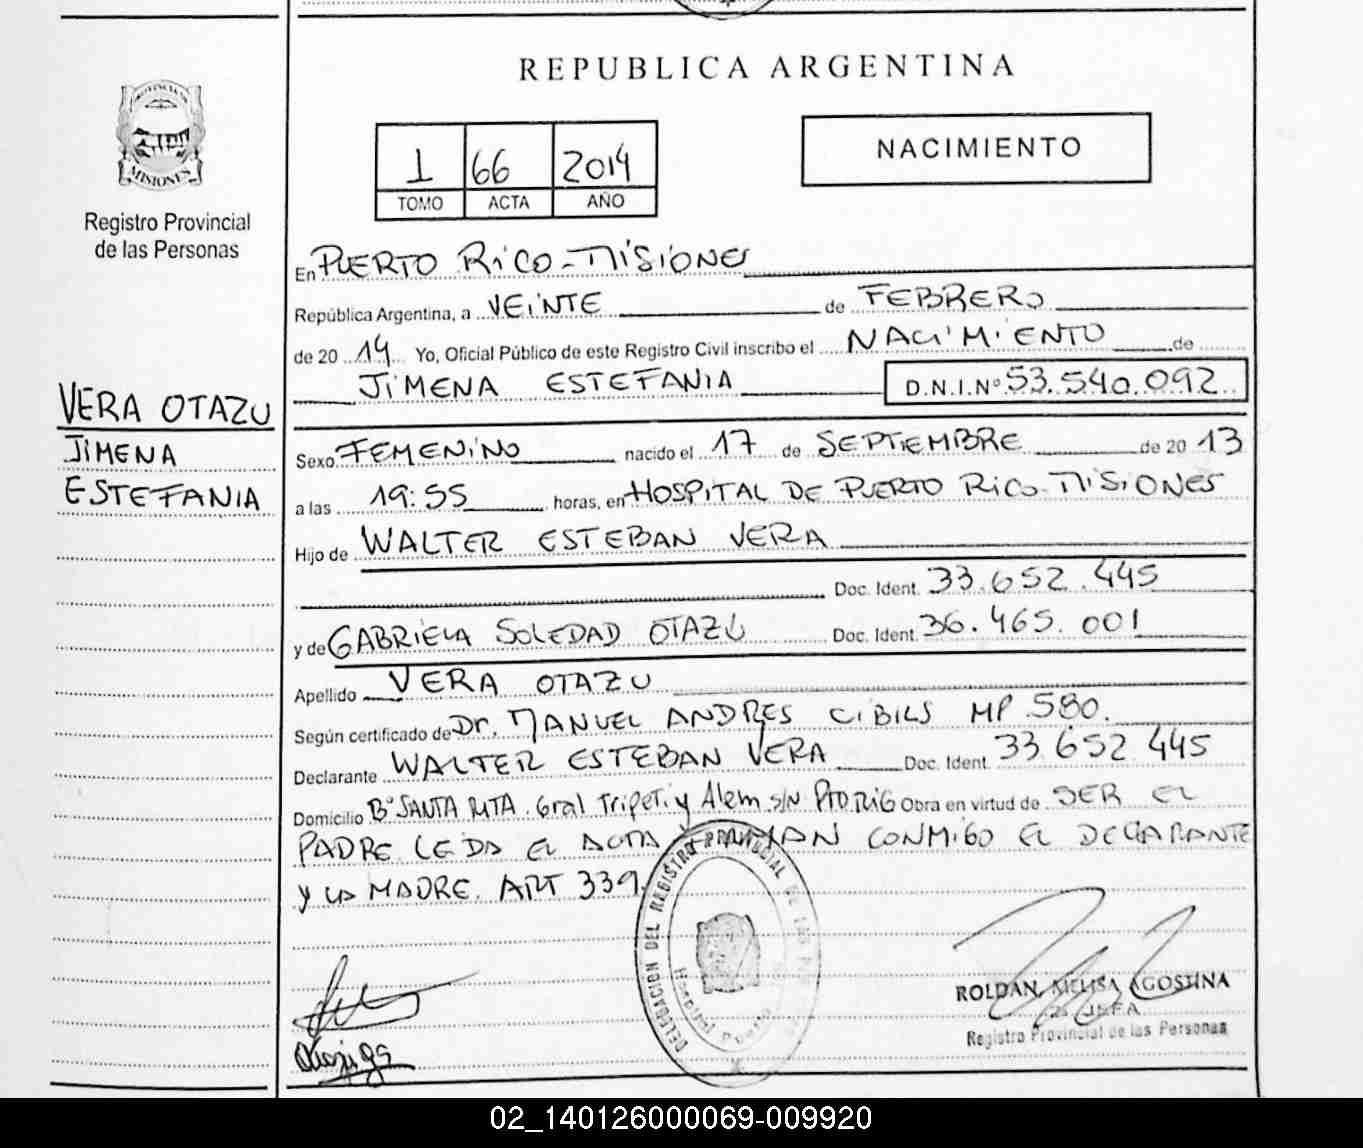 REPUBLICA ARGENTINA
PROVINCIA DE
MISIONES
Registro Provincial
de las Personas
1 66 2014
TOMO ACTA AÑO
NACIMIENTO
En PUERTO RICO - MISIONES
República Argentina, a VEINTE de FEBRERO
de 20 14 Yo, Oficial Público de este Registro Civil inscribo el NACIMIENTO de
JIMENA ESTEFANIA D.N.I.Nº 53.540.092
VERA OTAZU
JIMENA
ESTEFANIA
Sexo FEMENINO nacido el 17 de SEPTIEMBRE de 20 13
a las 19:55 horas, en HOSPITAL DE PUERTO RICO - MISIONES
Hijo de WALTER ESTEBAN VERA
Doc. Ident. 33.652.445
y de GABRIELA SOLEDAD OTAZU Doc. Ident. 36.465.001
Apellido VERA OTAZU
Según certificado de Dr. MANUEL ANDRES CIBILS MP 580.
Declarante WALTER ESTEBAN VERA Doc. Ident. 33.652.445
Domicilio Bº SANTA RITA. Gral Tripeti y Alem s/n PTO RIG Obra en virtud de SER EL
PADRE LEIDA EL ACTA FIRMAN CONMIGO EL DECLARANTE
Y LA MADRE. ART 339.
DELEGACION DEL REGISTRO PROVINCIAL DE LAS
Hospital Puerto
ROLDAN, MELISA AGOSTINA
JEFA
Registro Provincial de las Personas
02_140126000069-009920